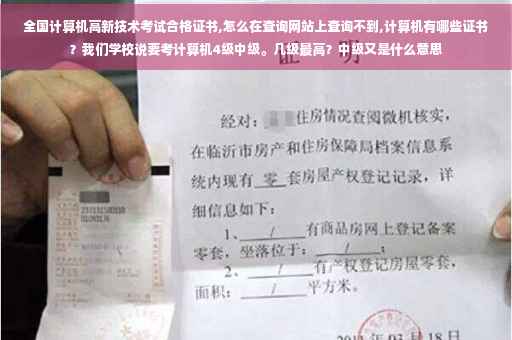 全国计算机高新技术考试合格证书,怎么在查询网站上查询不到,计算机有哪些证书
？我们学校说要考计算机4级中级。几级最高？中级又是什么意思
证 明
经对：住房情况查阅微机核实，
在临沂市房产和住房保障局档案信息系
统内现有 零 套房屋产权登记记录，详
细信息如下：
1、 / 有商品房网上登记备案
零套，坐落位于： / ；
2、 / 有产权登记房屋零套，
面积： / 平方米。
03月18日